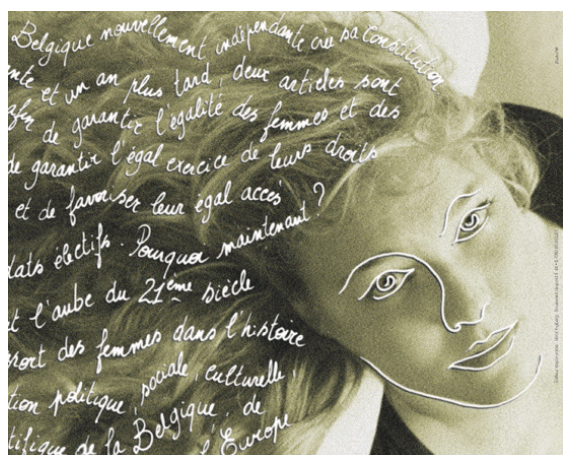 Belgique nouvellement indépendante crée sa Constitution
et un an plus tard, deux articles sont
afin de garantir l'égalité des femmes et des
de garantir l'égal exercice de leurs droits
et de favoriser leur égal accès
électifs. Pourquoi maintenant ?
l'aube du 21ème siècle
des femmes dans l'histoire
politique, sociale, culturelle,
de la Belgique, de
l'Europe